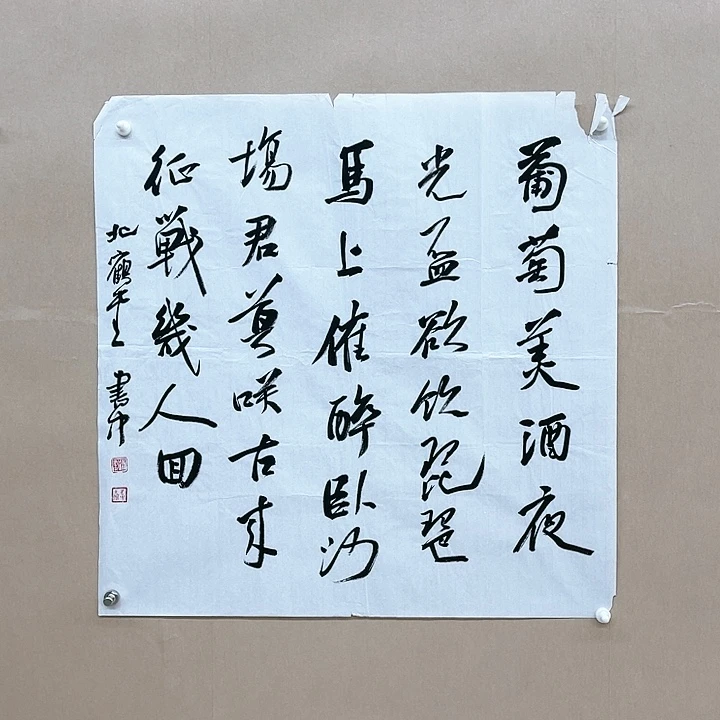 葡萄美酒夜
光盃欲飲琵琶
馬上催醉臥沙
場君莫咲古来
征戰幾人回
書